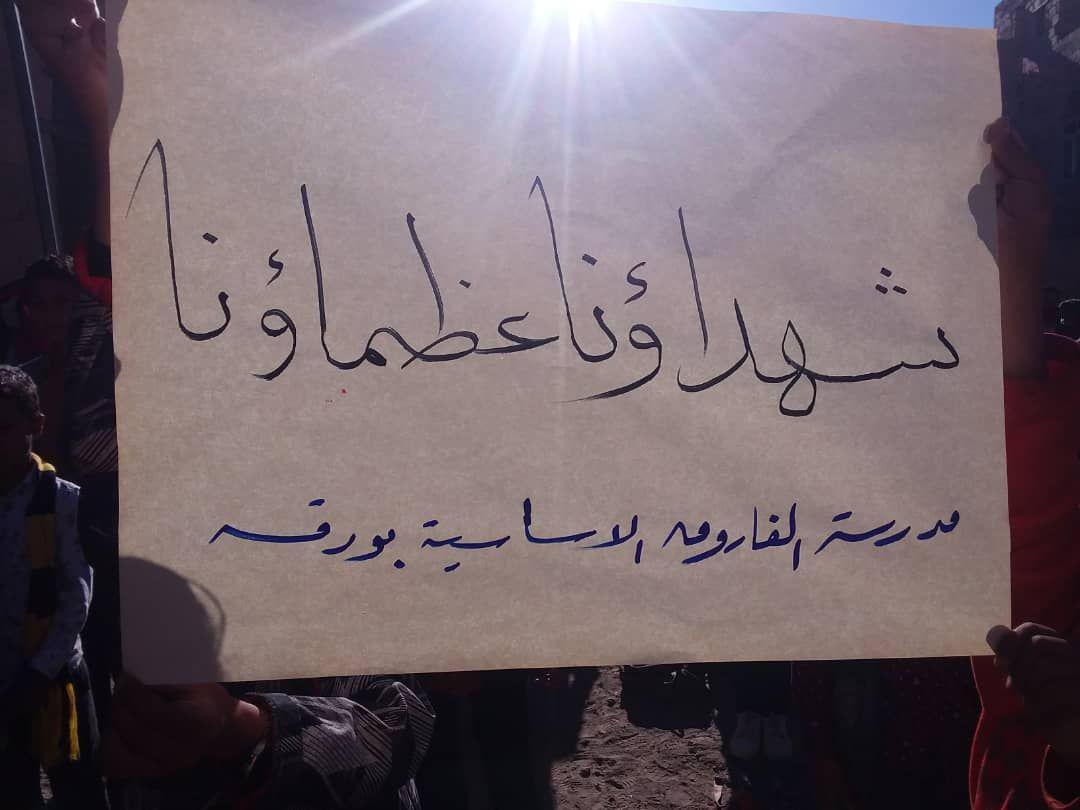 شهداؤنا عظماؤنا
مدرسة الفاروق الاساسية بورقه